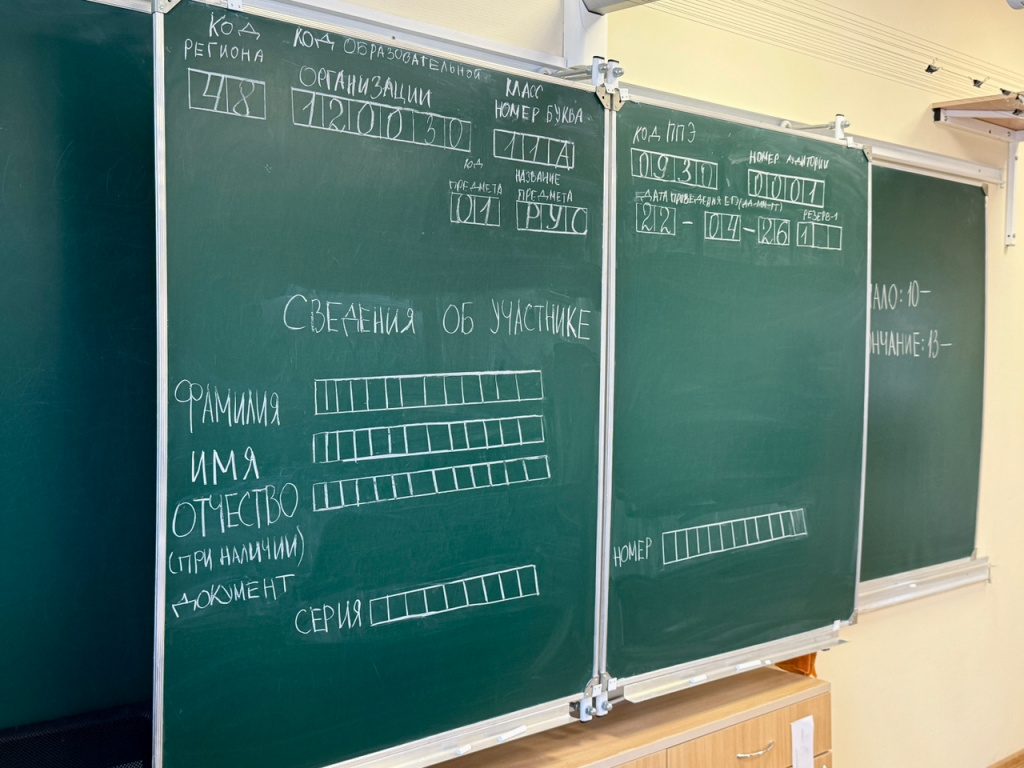 КОД
РЕГИОНА
48
КОД ОБРАЗОВАТЕЛЬНОЙ
ОРГАНИЗАЦИИ
120030
КЛАСС
НОМЕР БУКВА
11А
КОД
ПРЕДМЕТА
01
НАЗВАНИЕ
ПРЕДМЕТА
РУС
КОД ППЭ
НОМЕР АУДИТОРИИ
0001
ДАТА ПРОВЕДЕНИЯ ЕГЭ (ДД-ММ-ГГ)
22-04-26
РЕЗЕРВ-1
1
СВЕДЕНИЯ ОБ УЧАСТНИКЕ
ФАМИЛИЯ
ИМЯ
ОТЧЕСТВО
(ПРИ НАЛИЧИИ)
ДОКУМЕНТ
СЕРИЯ
НОМЕР
АЛО: 10—
НЧАНИЕ: 13—